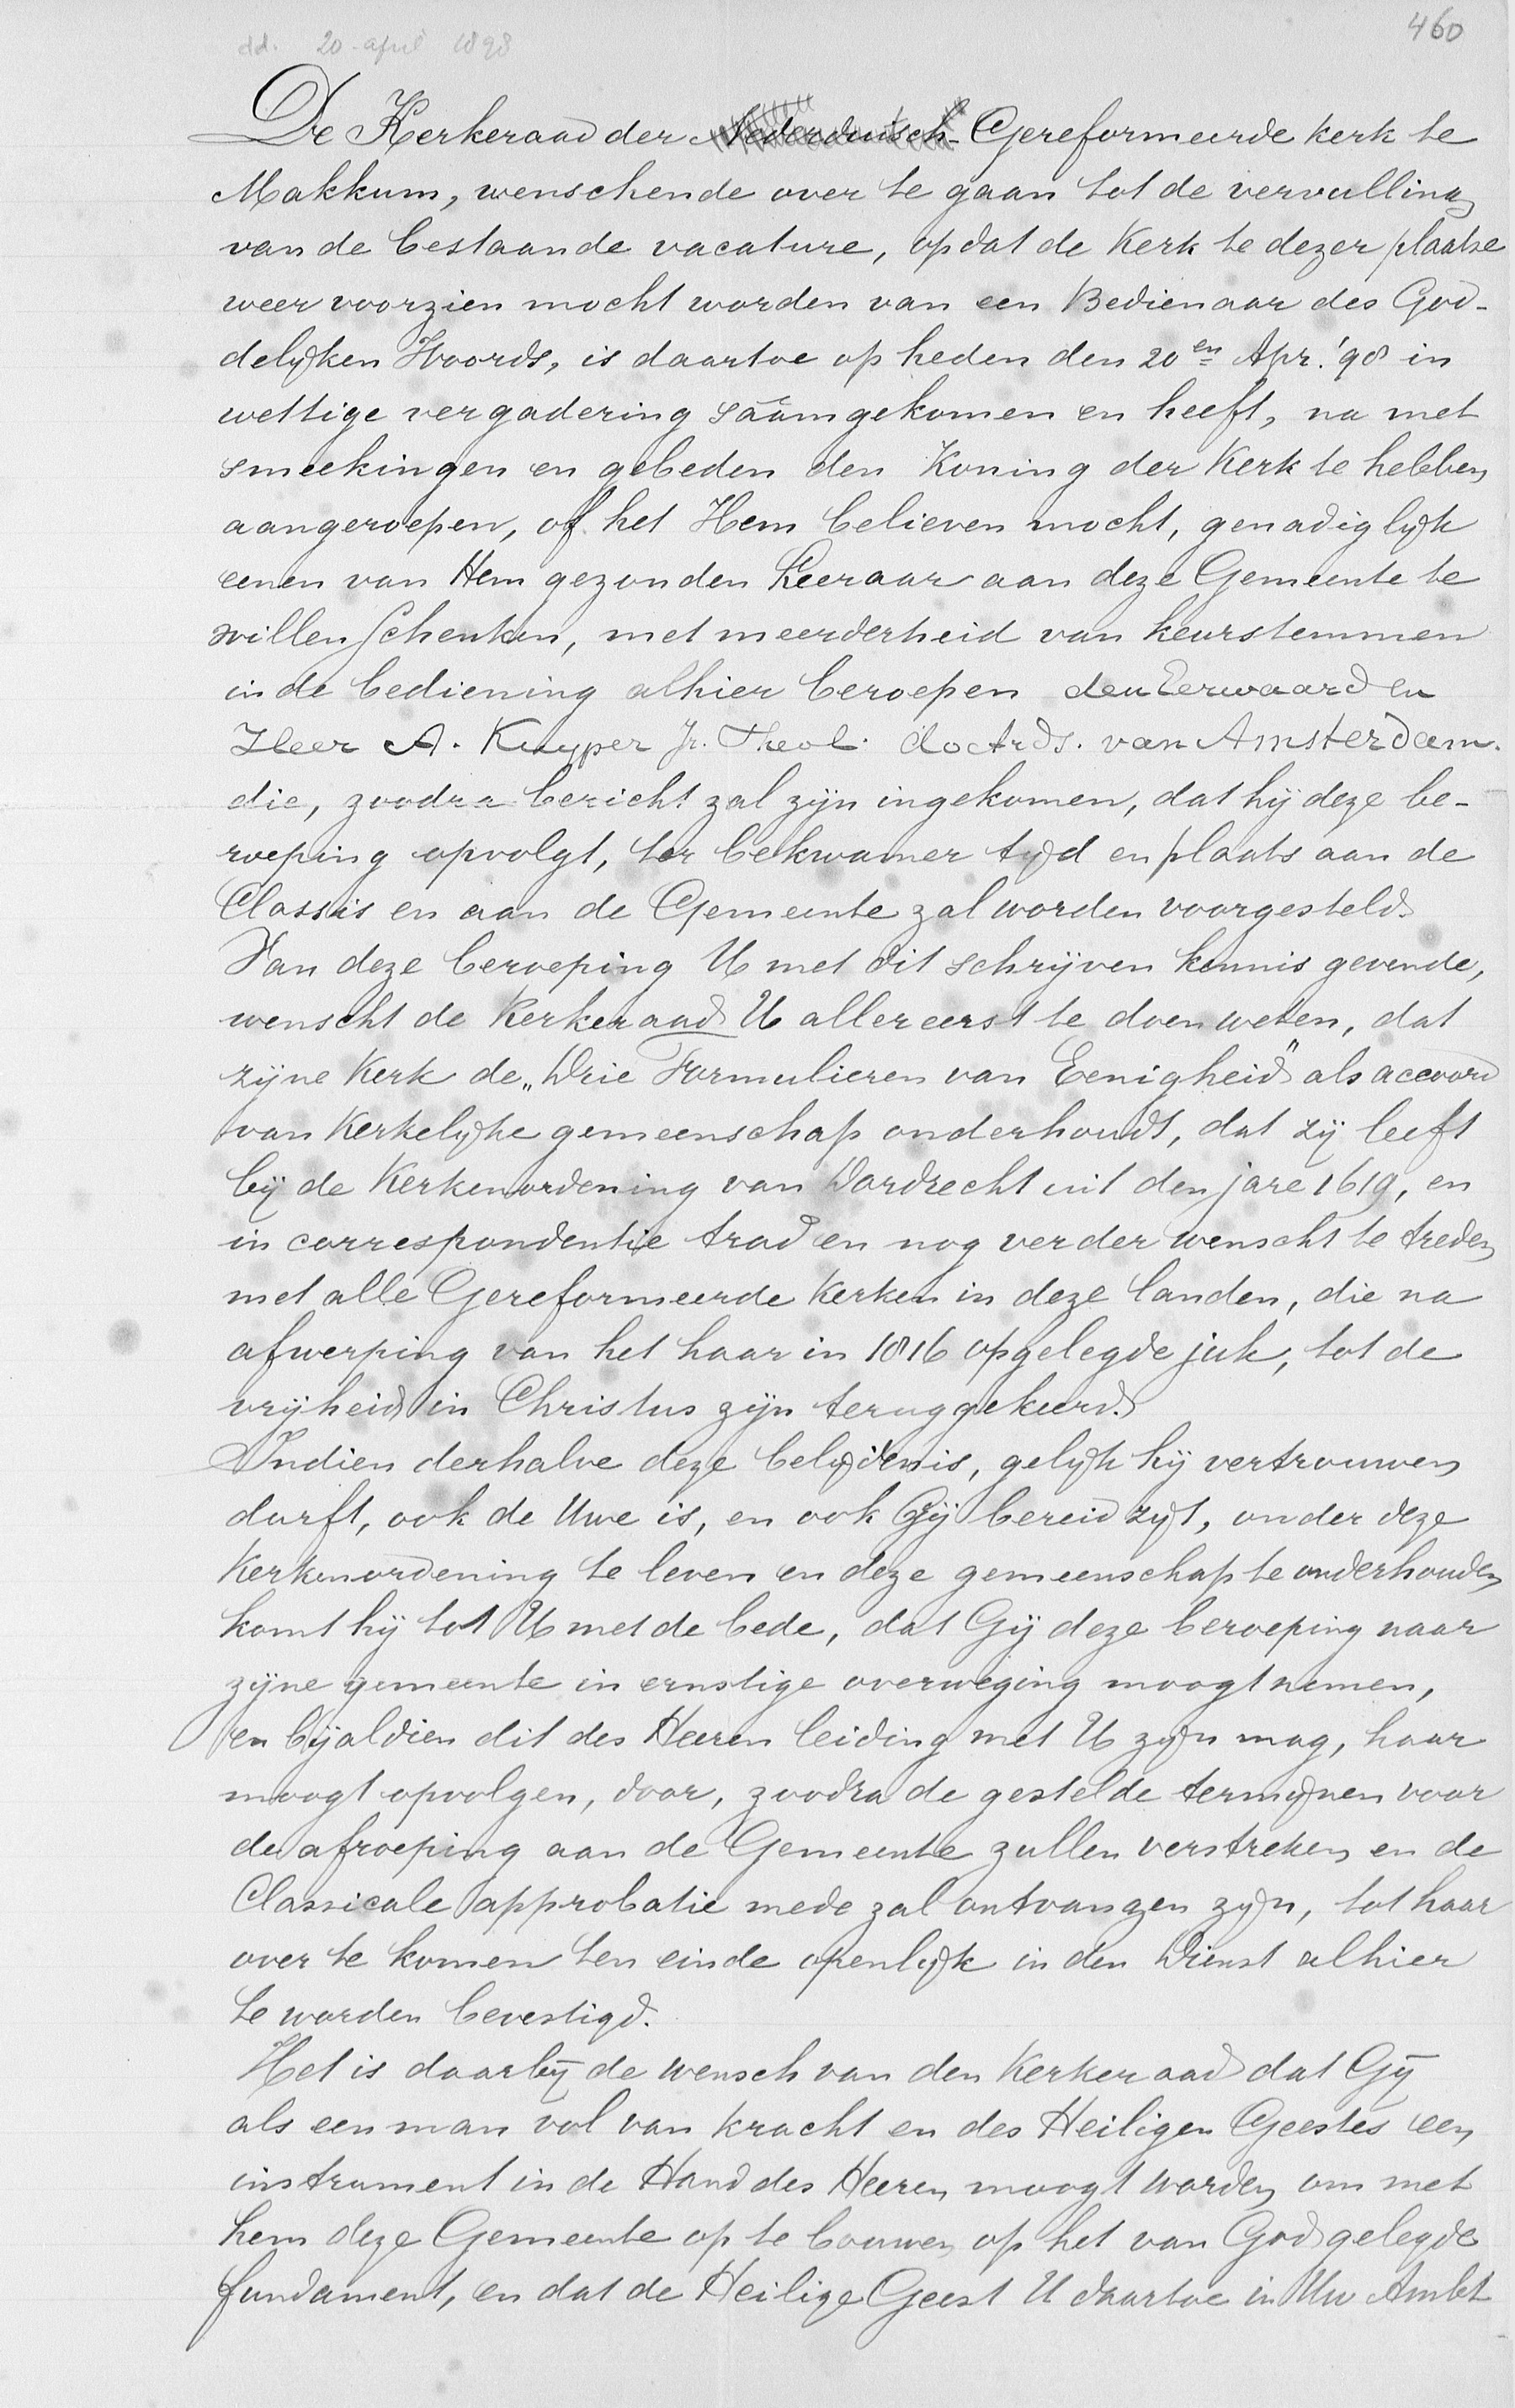 460
dd. 20 april 1898
De Kerkeraad der Nederduitsch-Gereformeerde kerk te
Makkum, wenschende over te gaan tot de vervulling
van de bestaande vacature, opdat de Kerk te dezer plaatse
weer voorzien mocht worden van een Bedienaar des God-
delijken Woords, is daartoe op heden den 20en Apr. '98 in
wettige vergadering saamgekomen en heeft, na met
smeekingen en gebeden den Koning der Kerk te hebben
aangeroepen, of het Hem believen mocht, genadiglijk
eenen van Hem gezonden Leeraar aan deze Gemeente te
willen schenken, met meerderheid van keurstemmen
in de bediening alhier beroepen den Eerwaarden
Heer A. Kuyper Jr. Theol. doctrds. van Amsterdam.
die, zoodra bericht zal zijn ingekomen, dat hij deze be-
roeping opvolgt, ter bekwamer tijd en plaats aan de
Classis en aan de Gemeente zal worden voorgesteld.
Van deze beroeping U met dit schrijven kennis gevende,
wenscht de Kerkeraad U allereerst te doen weten, dat
zijne Kerk de „Drie Formulieren van Eenigheid" als accoord
van Kerkelijke gemeenschap onderhoudt, dat zij leeft
bij de Kerkenordening van Dordrecht uit den jare 1619, en
in correspondentie trad en nog verder wenscht te treden
met alle Gereformeerde Kerken in deze landen, die na
afwerping van het haar in 1816 opgelegde juk, tot de
vrijheid in Christus zijn teruggekeerd.
Indien derhalve deze belijdenis, gelijk hij vertrouwen
durft, ook de Uwe is, en ook Gij bereid zijt, onder deze
Kerkenordening te leven en deze gemeenschap te onderhouden
komt hij tot U met de bede, dat Gij deze beroeping naar
zijne gemeente in ernstige overweging moogt nemen,
en bijaldien dit des Heeren leiding met U zijn mag, haar
moogt opvolgen, door, zoodra de gestelde termijnen voor
de afroeping aan de Gemeente zullen verstreken en de
Classicale approbatie mede zal ontvangen zijn, tot haar
over te komen ten einde openlijk in den Dienst alhier
te worden bevestigd.
Het is daarbij de wensch van den Kerkeraad dat Gij
als een man vol van kracht en des Heiligen Geestes een
instrument in de Hand des Heeren moogt worden om met
hem deze Gemeente op te bouwen op het van God gelegde
fundament, en dat de Heilige Geest U daartoe in Uw Ambt